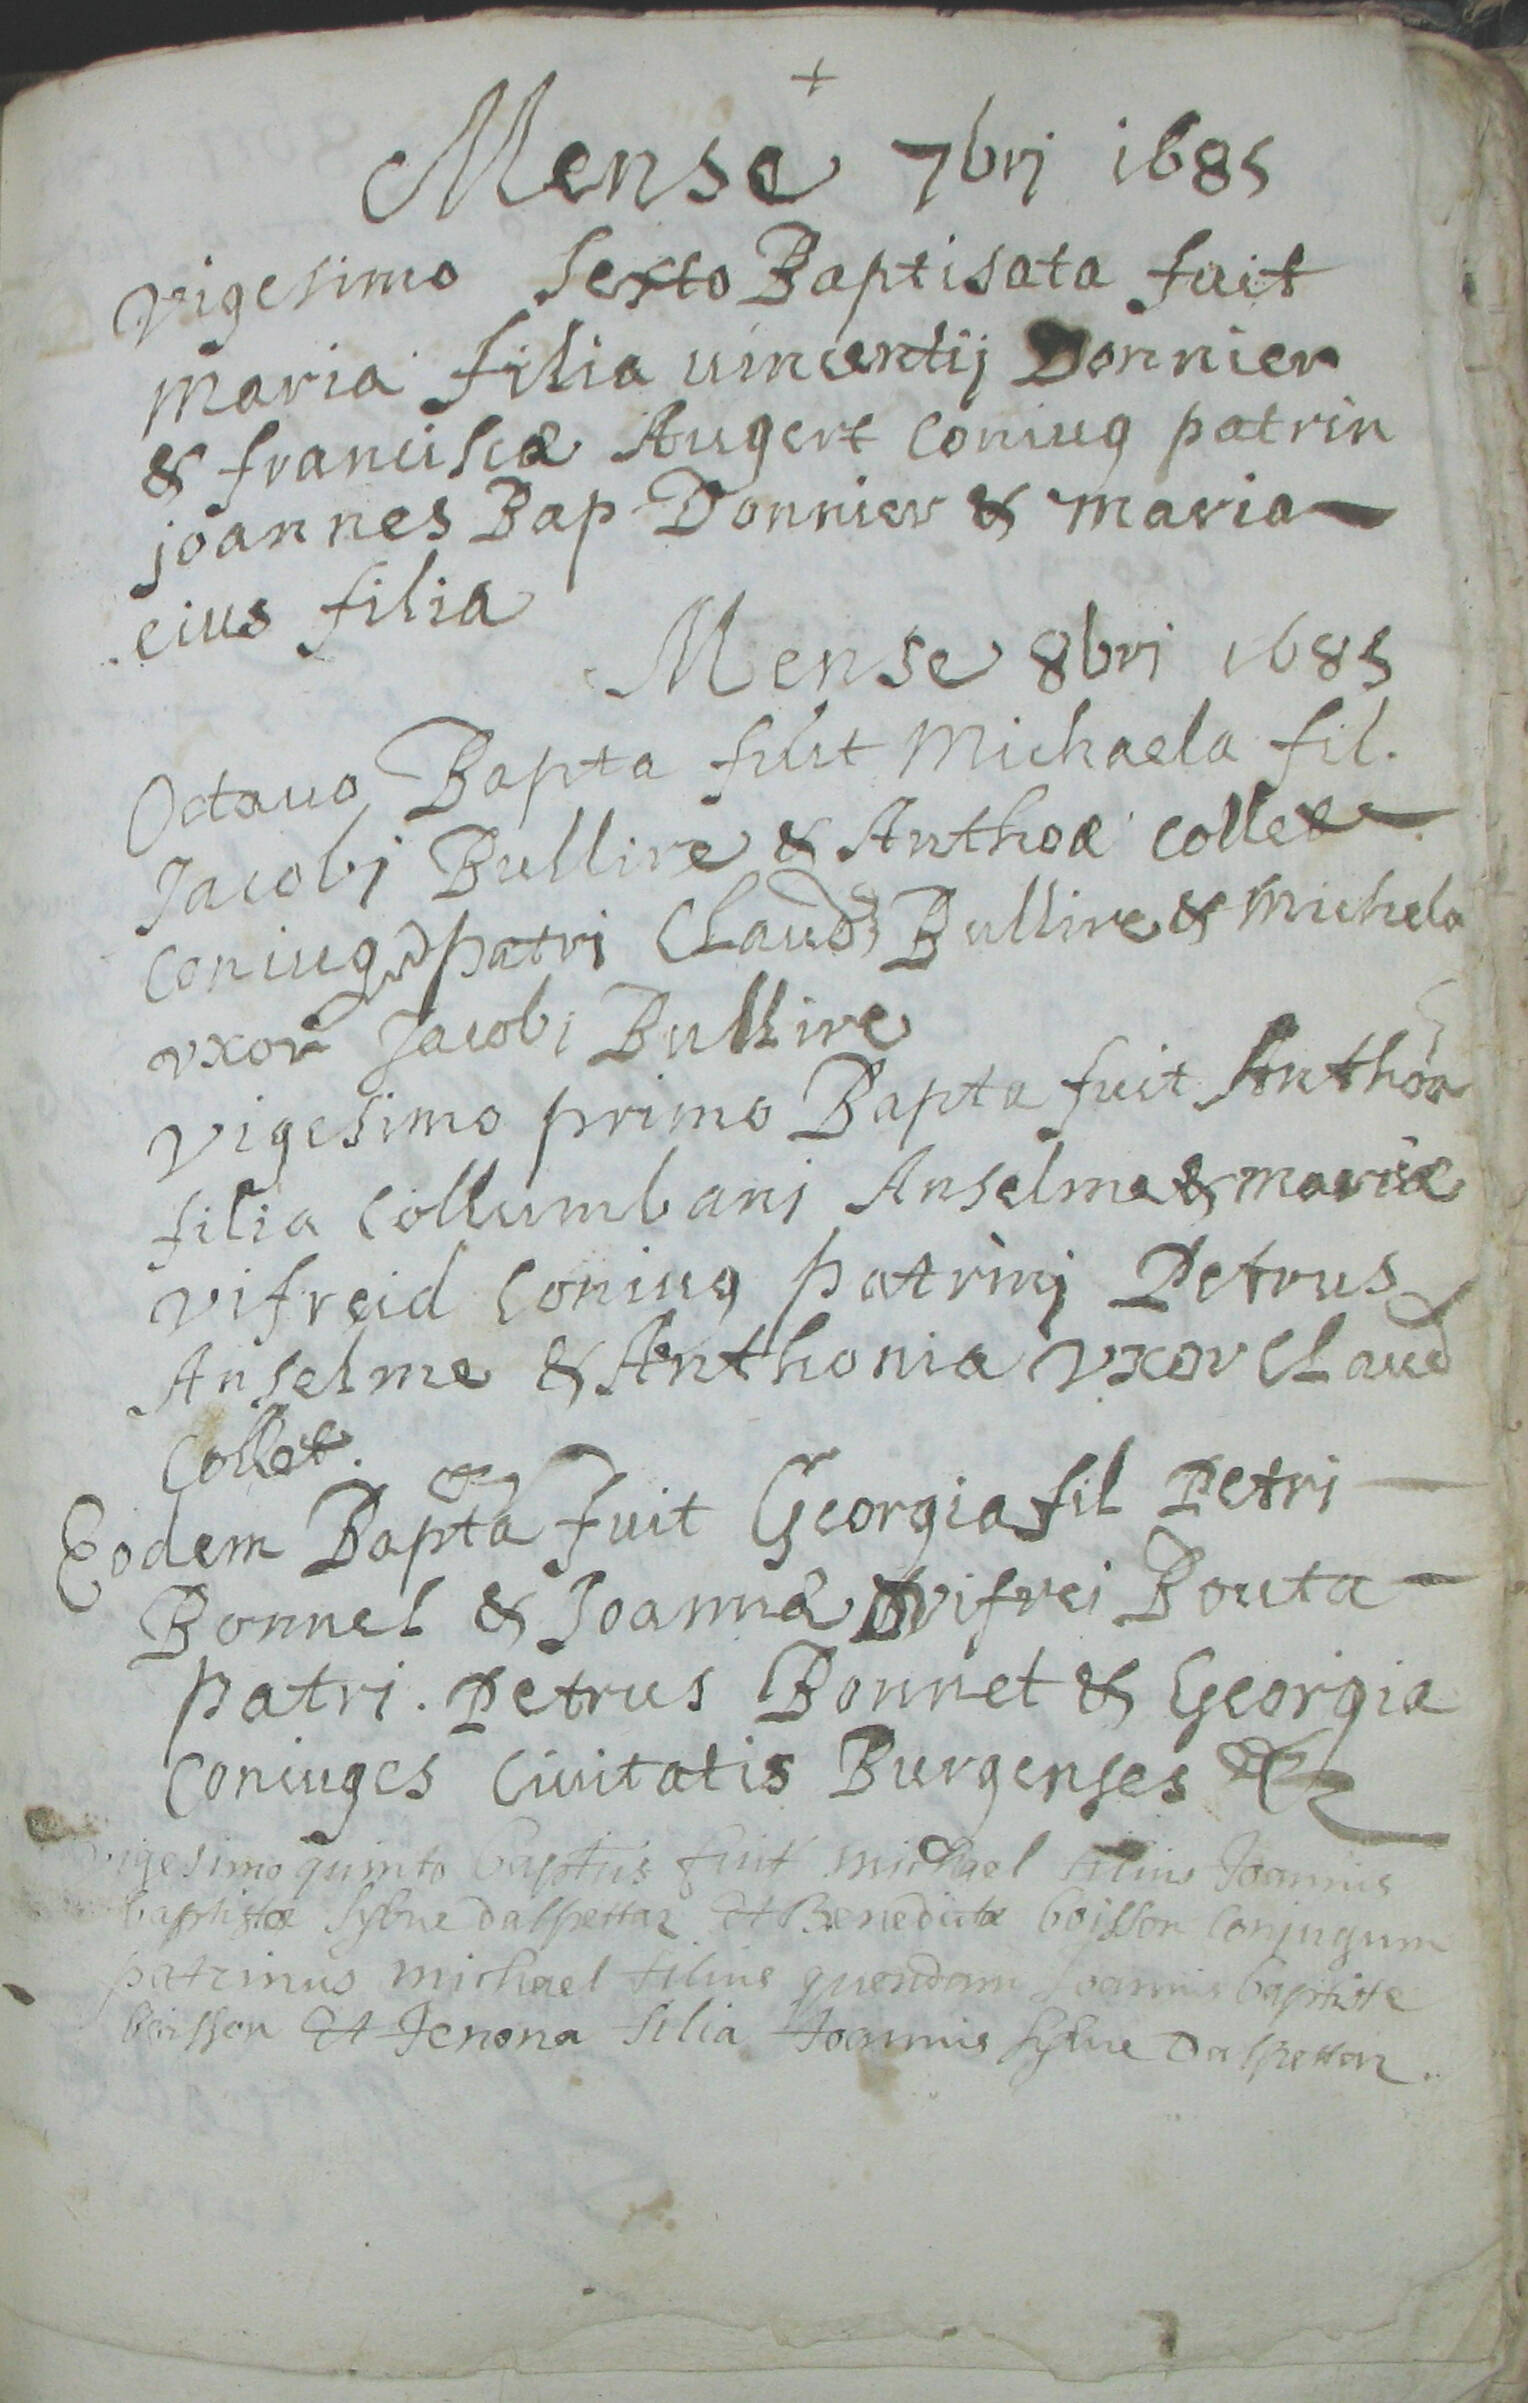 +
Mense 7brj 1685
vigesimo sexto Baptisata fuit
maria filia uincentij Donnier
& francisca Augert Coniug patrin
joannes Bap Donnier & maria
eius filia
Mense 8brj 1685
Octauo Bapta fuit Michaela fil.
Jacobj Bullire & Anthoæ collet
Coniug patri Claud Bullire & michela
vxor Jacobi Bullire
vigesimo primo Bapta fuit Anthoa
filia Collumbanj Anselme & mariæ
vifreid Coniug patrinj Petrus
Anselme & Anthonia vxor Claud
Collet.
Eodem Bapta fuit Georgia fil Petri
Bonnel & Joannæ vifrei Bouta
patri. Petrus Bonnet & Georgia
Coniuges Ciuitatis Burgenses
vigesimo quinto baptus fuit michael filius Joannis
baptistæ dalpettaz et Benedictæ boisson Conjugum
patrinus michael filius quondam Joannis baptiste
boisson et Jenona filia Joannis dalpettaz.